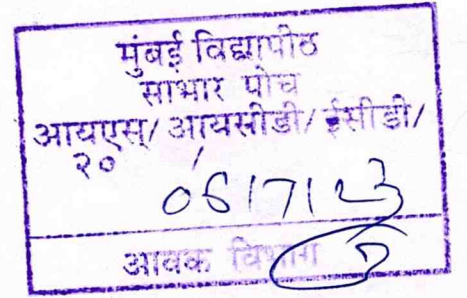 मुंबई विद्यापीठ
साभार पोच
आयएस्/ आयसीडी/ ईसीडी/
२० /
06/7/23
आवक विभाग